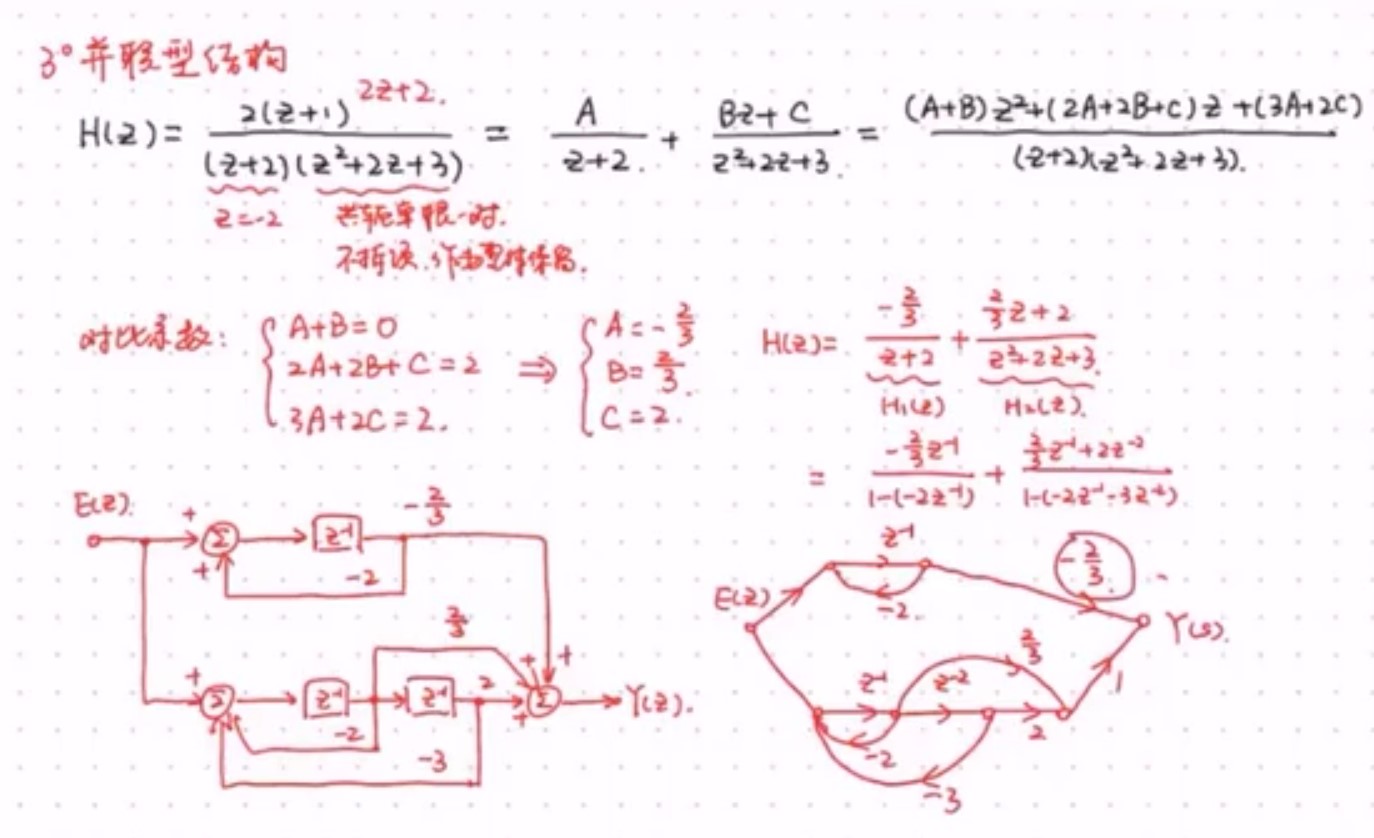 3° 并联型结构
2z+2.
H(z) = 2(z+1) / (z+2)(z²+2z+3) = A / z+2. + Bz+C / z²+2z+3. = (A+B)z²+(2A+2B+C)z+(3A+2C) / (z+2)(z²+2z+3).
z=-2 共轭单根一对.
不拆误.作为整体保留.
对比系数: { A+B=0
2A+2B+C=2
3A+2C=2.
⇒ { A=-2/3
B=2/3.
C=2.
H(z)= -2/3 / z+2 + 2/3z+2 / z²+2z+3.
H₁(z) H₂(z).
= -2/3z⁻¹ / 1-(-2z⁻¹) + 2/3z⁻¹+2z⁻² / 1-(-2z⁻¹-3z⁻²)
E(z).
+ Σ z⁻¹ -2/3
+ -2
2/3
+ Σ z⁻¹ z⁻¹ 2 + + + Σ Y(z).
-2
-3
z⁻¹ -2/3.
E(z) -2. Y(s).
2/3
z⁻¹ z⁻² 1
-2 2
-3